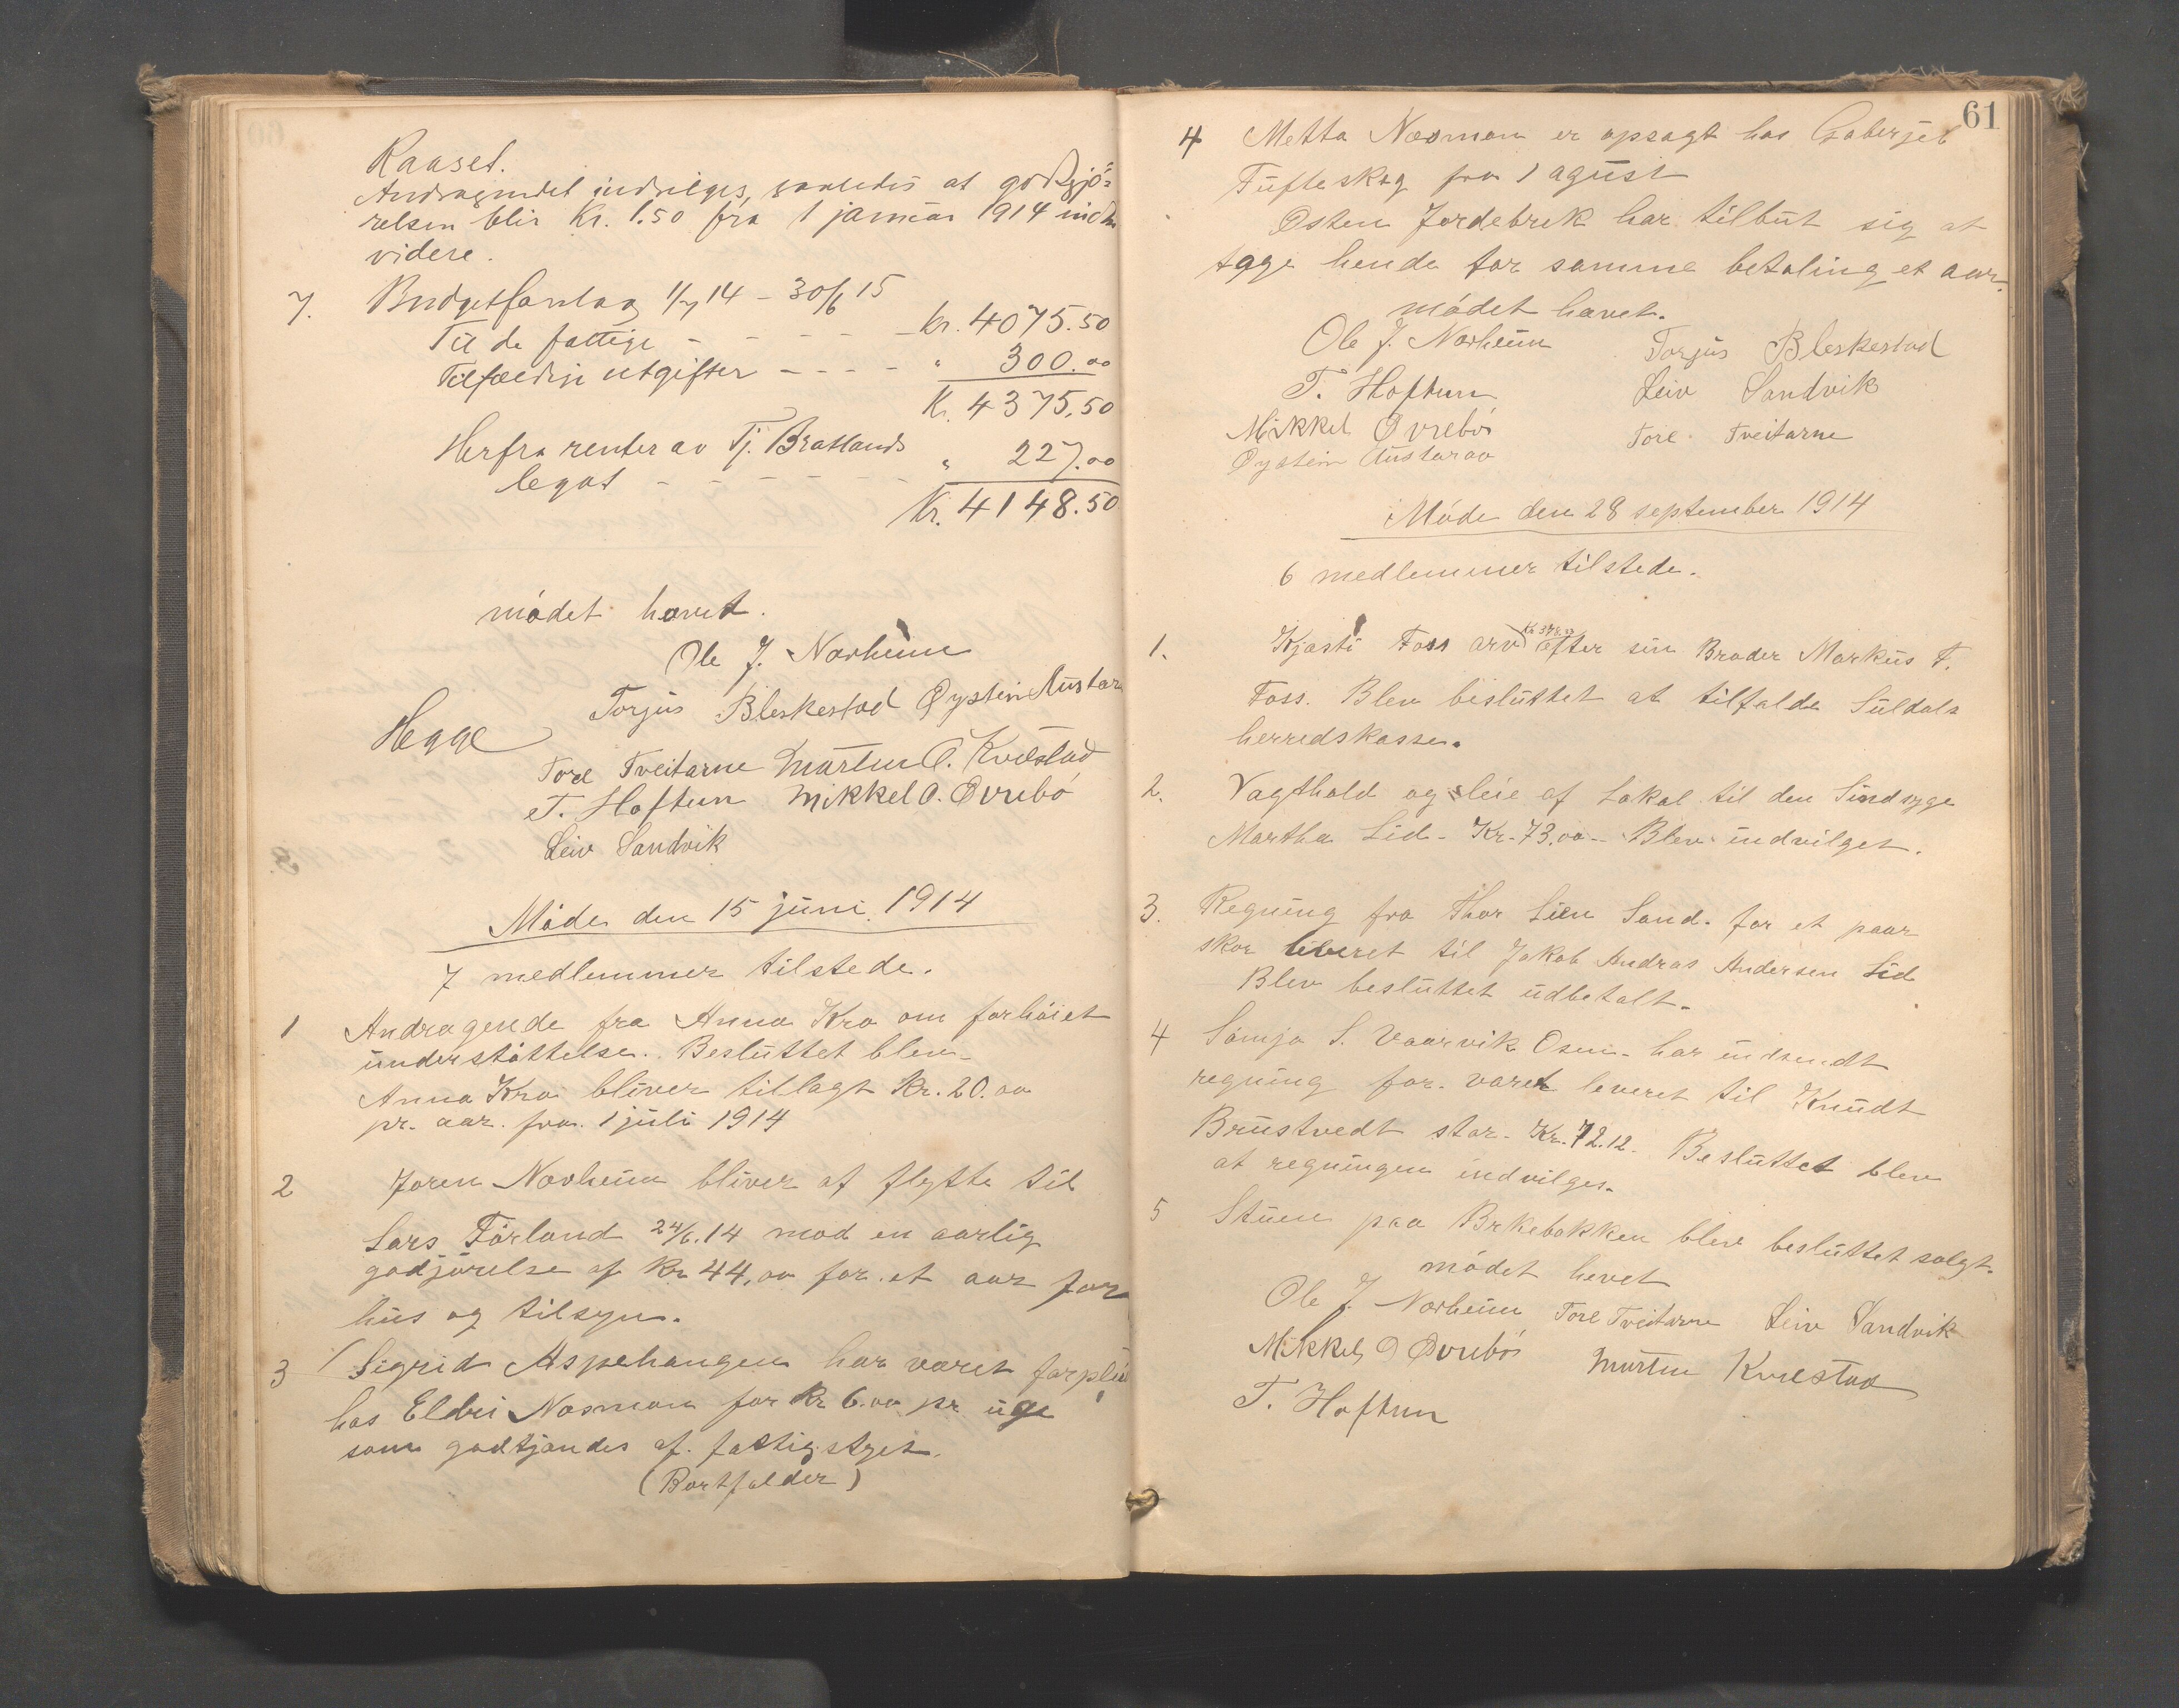 Raaset.
Andragendet indvilges, saaledes at godtgjö-
relsen blir Kr. 1.50 fra 1 januar 1914 indtil
videre.
7. Budgetforslag 1/7 14 - 30/6 15
Til de fattige - - - - Kr. 4075.50
Tilfældige utgifter - - - - " 300.00
Kr. 4375.50
Herfra renter av Tj. Bratlands
legat - - - - - - " 227.00
Kr. 4148.50
mödet hævet.
Ole J. Norheim
Torjus Bleskestad Øystein Austarå
Hegge
Tore Tveitarne Morten O. Kvelstad
T. Hoftun Mikkel O. Øvrebö
Leiv Sandvik
Möde den 15 juni 1914
7 medlemmer tilstede.
1 Andragende fra Anna Kro om forhöiet
understöttelse. Besluttet blev
Anna Kro bliver tillagt Kr. 20.00
pr. aar. fra. 1 juli 1914
2 Joren Norheim bliver at flytte til
Lars Förland 24/6.14 mod en aarlig
godjörelse af Kr 44,00 for et aar for
hus og tilsyn.
3 Sigrid Aspehaugen har været forplei
hos Eldri Næsman for Kr 6.00 pr. uge
som godkjendes af. fattigstyret.
(Bortfalder)
61
4 Metta Næsman er opsagt hos Gaberjel
Tufteskog fra 1 agust
Østen Jordebrek har tilbut sig at
tage hende for samme betaling et aar.
mödet hævet.
Ole J. Norheim Torjus Bleskestad
T. Hoftun Leiv Sandvik
Mikkel Øvrebö Tore Tveitarne
Øystein Austaraa
Möde den 28 september 1914
6 medlemmer tilstede.
1. Kjasti Foss arv efter sin Broder Markus T.
Foss. Blev besluttet at tilfalde Suldals
herredskasse.
2. Vagthold og leie af Lokal til den Sindsyge
Martha Lid - Kr. 73.00 - Blev indvilget.
3. Regning fra Thor Lien Sand. for et paar
skor leveret til Jakob Andras Andersen Lid
Blev besluttet udbetalt.
4 Samja S. Vaarvik Osen - har indsendt
regning for. varer leveret til Knudt
Brustvedt stor. Kr. 72.12. Besluttet blev
at regningen indvilges.
5 Stuen paa Brkebakken blev besluttet solgt.
mödet hevet
Ole J. Norheim Tore Tveitarne Leiv Sandvik
Mikkel O Øvrebö Morten Kvelstad
T. Hoftun